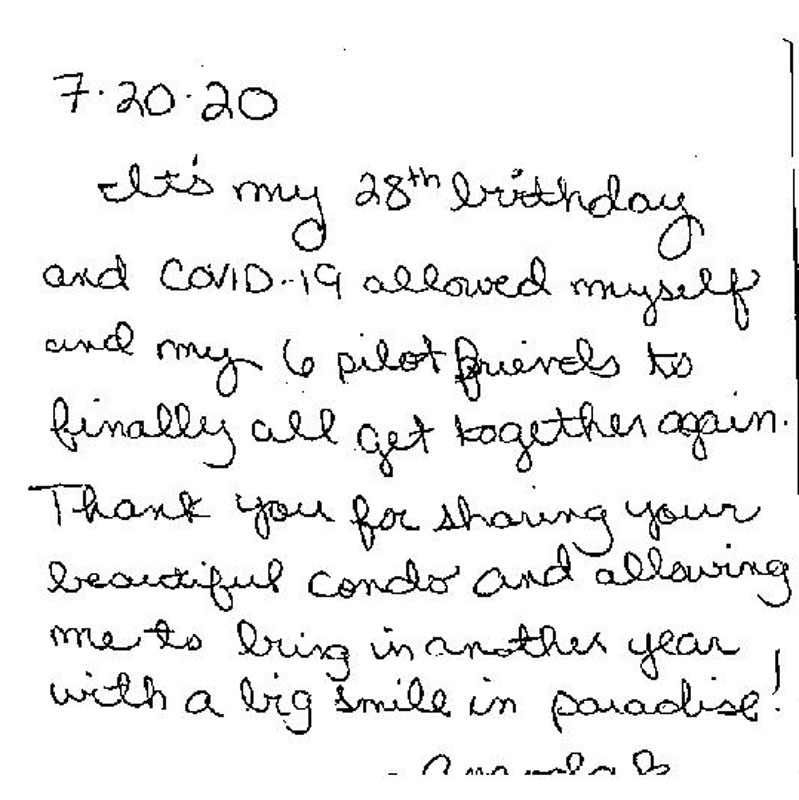 7.20.20
It's my 28th birthday
and COVID-19 allowed myself
and my 6 pilot friends to
finally all get together again.
Thank you for sharing your
beautiful condo and allowing
me to bring in another year
with a big smile in paradise!